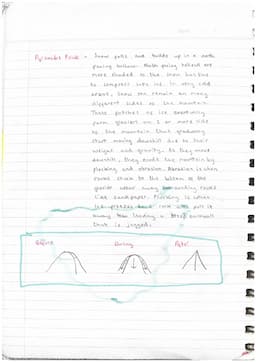 Pyramidal Peak - Snow falls and builds up in a north
facing hollow. North facing hollows are
more shaded so the snow has time
to compress into ice. In very cold
areas, snow can remain on many
different sides to the mountain.
These patches of ice eventually
form glaciers on 3 or more sides
of the mountain that gradually
start moving downhill due to their
weight and gravity. As they move
downhill, they erode the mountain by
plucking and abrasion. Abrasion is when
rocks stuck to the bottom of the
glacier wear away surrounding rocks
like sandpaper. Plucking is when
ice freezes onto rock and pull it
away leading a steep backwall
that is jagged.
Before During After